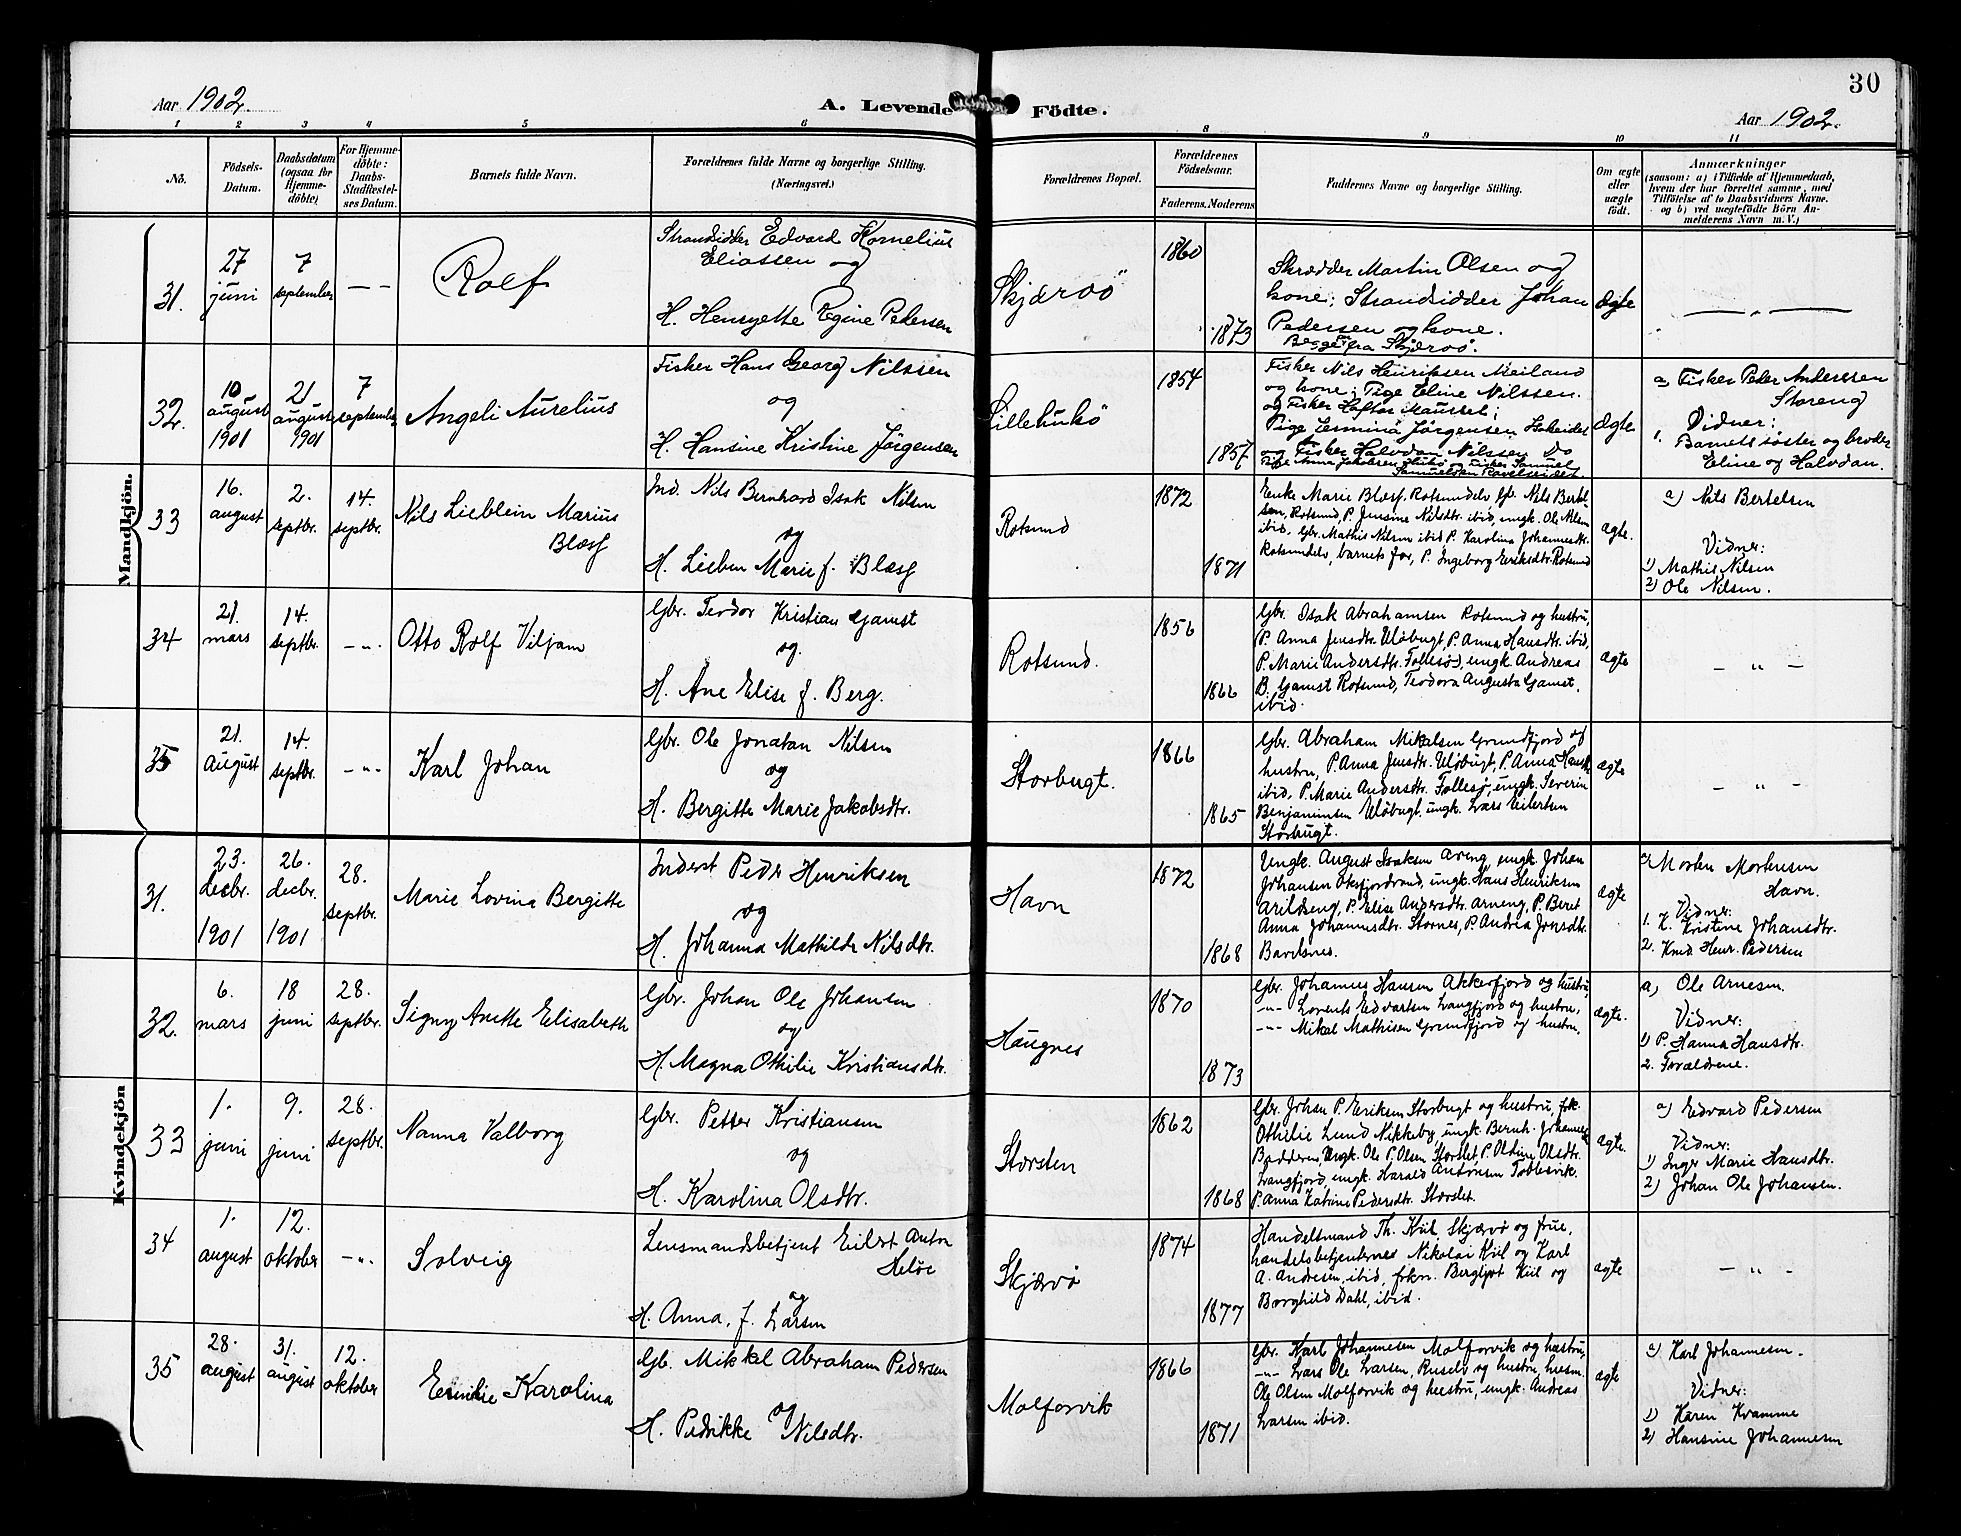 30
Aar 1902.
A. Levende Födte.
Aar 1902.
1 2 3 4 5 6 8 9 10 11
No.
Födsels-
Datum.
Daabsdatum
(ogsaa for
Hjemme-
döbte)
For Hjemme-
döbte:
Daabs-
Stadfæstel-
ses Datum.
Barnets fulde Navn.
Forældrenes fulde Navne og borgerlige Stilling.
(Næringsvei.)
Forældrenes Bopæl.
Forældrenes
Födselsaar.
Faderens. Moderens
Faddernes Navne og borgerlige Stilling.
Om ægte
eller
uægte
födt.
Anmærkninger
(saasom: a) i Tilfælde af Hjemmedaab,
hvem der har forrettet samme, med
Tilföielse af to Daabsvidners Navne.
og b) ved uægtefödte Börn An-
melderens Navn m. V.)
Mandkjön.
31.
27
juni
7
september
— —
Rolf
Strandsidder Edvard Kornelius
Eliassen og
H. Henryette Regine Pedersen
Skjærvö
1860
1873
Skrædder Martin Olsen og
kone; Strandsidder Johan
Pedersen og kone.
Begge fra Skjærvö.
Ægte
— " —
32.
10
august
1901
21
august
1901
7
september
Angeli Aurelius
Fisker Hans Georg Nilssen
og
H. Hansine Kristine Jörgensen
Lillehukö
1854
1857
Fisker Nils Henriksen Meiland
og kone; Pige Eline Nilssen.
og Fisker Hoftar Maussel;
Pige Jörgensen Hakeidet
og Fisker Halvdan Nilssen Do
Pige Anna Jakobsen og Fisker Samuel
Samuelsen
Ægte
a Fisker Peder Anderssen
Storeng
Vidner:
1. Barnets söster og broder
Eline og Halvdan.
33
16.
august
2.
septbr.
14.
septbr.
Nils Lieblein Marius
Blæsf
Ind. Nils Bernhard Isak Nilsen
og
H. Lieben Marie f. Blæsf
Rotsund
1872
1871
Enke Marie Blæsf. Rotsundelv Gbr. Nils Bertel-
sen, Rotsund, P. Jensine Nilsdtr. ibid, ungk. Ole Nilsen
ibid, Gbr. Mathis Nilsen ibid P. Karolina Johannesdtr.
Rotsundelv, barnets far, P. Ingeborg Eriksdtr. Rotsund
ægte.
a) Nils Bertelsen
Vidner:
1) Mathis Nilsen
2) Ole Nilsen.
34
21.
mars
14.
septbr.
— " —
Otto Rolf Viljam
Gbr. Teodor Kristian Gamst
og
H. Ane Elise f. Berg.
Rotsund.
1856
1866
Gbr. Isak Abrahamsen Rotsund og hustru,
P. Anna Jensdtr. Uløbugt, P. Anna Hansdtr. ibid,
P. Marie Andersdtr. Follesø, ungk. Andreas
B. Gamst Rotsund, Teodora Augusta Gamst.
ibid.
ægte
— " —
35
21.
august
14.
septbr.
— " —
Karl Johan
Gbr. Ole Jonatan Nilsen
og
H. Bergitte Marie Jakobsdtr.
Storbugt.
1866
1865
Gbr. Abraham Mikalsen Grundfjord og
hustru, P. Anna Jensdtr. Uløbugt, P. Anna Hansdtr.
ibid, P. Marie Andersdtr. Follesø, ungk. Severin
Benjaminsen Uløbugt, ungk. Lars Eilertsen
Storbugt.
ægte
— " —
Kvindekjön
31.
23.
decbr.
1901
26.
decbr.
1901
28.
septbr.
Marie Lovina Bergitte
Inderst Peder Henriksen
og
H. Johanna Mathilde Nilsdtr.
Havn
1872
1868
Ungk. August Isaksen Areng, ungk. Johan
Johansen Oksfjordrand, ungk. Hans Henriksen
Arildseng, P. Elise Andersdtr. Arneng, P. Beret
Anna Johannesdtr. Stornes, P. Andrea Jonsdtr.
Bavelsnes.
ægte
a) Morten Mortensen
Havn.
Vidner:
1. H. Kristine Johansdtr.
2. Kned Henr. Pedersen
32.
6.
mars
18
juni
28.
septbr.
Signy Anette Elisabeth
Gbr. Johan Ole Johansen
og
H. Magna Othilie Kristiansdtr.
Haugnes
1870
1873
Gbr. Johannes Hansen Akkerfjord og hustru,
—"— Lorents Edvartsen Langfjord og hustru,
—"— Mikal Mathisen Grundfjord og hustru.
ægte.
a) Ole Arnesen.
Vidner:
1) P. Hanna Hansdtr.
2. Forældrene.
33
1.
juni
9.
juni
28.
septbr.
Nanna Valborg
Gbr. Petter Kristiansen
og
H. Karolina Olsdtr.
Storsten
1862
1868
Gbr. Johan P. Eriksen Storbugt og hustru, frk.
Othilie Lund Nikkeby, ungk. Bernh. Johannesen
Badderen, Ungk. Ole P. Olsen Storslet, P. Oldine Olsdtr.
Langfjord, ungk. Harald Antonsen Toblesvik.
P. Anna Katrine Pedersdtr. Storslet.
ægte.
a) Edvard Pedersen
Vidner:
1) Inger Marie Hansdtr.
2) Johan Ole Johansen.
34
1.
august
12.
oktober
— " —
Solveig
Lensmandsbetjent Eilert Anton
Heløe
og
H. Anna, f. Larsen
Skjærvö
1874
1877
Handelsmand Th. Kiil, Skjærvö og frue,
handelsbetjenternes Nikolai Kiil og Karl
A. Andresen, ibid, frkn. Bergljot Kiil og
Borghild Dahl, ibid.
ægte
— " —
35
28.
august
31.
august
12.
oktober
Emilie Karolina
Gb. Mikkel Abraham Pedersen
og
H. Pedrikke Nilsdtr.
Molforvik
1866
1871
Gbr. Karl Johannesen Molforvik og hustru,
—"— Lars Ole Larsen, Ruselv og hustru, husm.
Ole Olsen Molforvik og hustru, ungk. Andreas
Larsen ibid.
ægte
a) Karl Johannesen.
Vidner:
1) Karen Kvamme
2) Hansine Johannesen